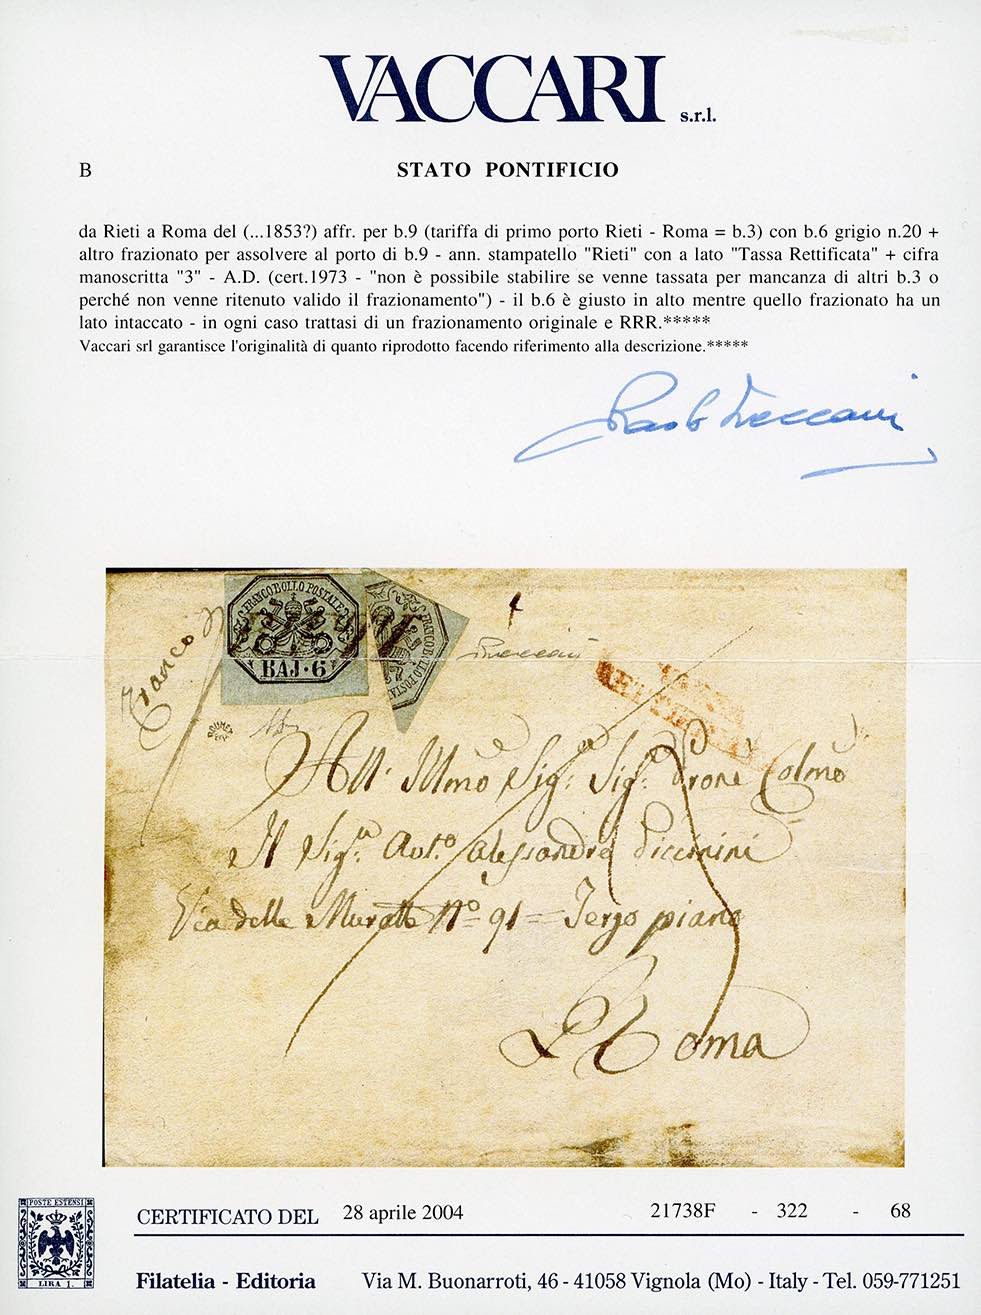 VACCARI s.r.l.
B STATO PONTIFICIO
da Rieti a Roma del (...1853?) affr. per b.9 (tariffa di primo porto Rieti - Roma = b.3) con b.6 grigio n.20 +
altro frazionato per assolvere al porto di b.9 - ann. stampatello "Rieti" con a lato "Tassa Rettificata" + cifra
manoscritta "3" - A.D. (cert.1973 - "non è possibile stabilire se venne tassata per mancanza di altri b.3 o
perché non venne ritenuto valido il frazionamento") - il b.6 è giusto in alto mentre quello frazionato ha un
lato intaccato - in ogni caso trattasi di un frazionamento originale e RRR.*****
Vaccari srl garantisce l'originalità di quanto riprodotto facendo riferimento alla descrizione.*****
Paolo Vaccari
FRANCOBOLLO POSTALE
BAJ·6
FRANCOBOLLO POSTA
Franco
Vaccari
All' Illmo Sig: Sig: Prone Colmo
Il Sig.r Avt.o Alessandro Piccinini
Via delle Muratte No 91 = Terzo piano
Roma
POSTE ESTENSI
LIRA 1.
CERTIFICATO DEL 28 aprile 2004 21738F - 322 - 68
Filatelia - Editoria Via M. Buonarroti, 46 - 41058 Vignola (Mo) - Italy - Tel. 059-771251